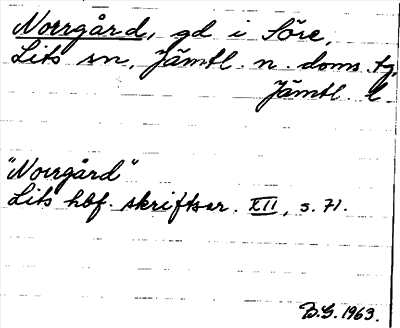 Norrgård, gd i Söre,
Lits sn, Jämtl. n. doms. tg,
Jämtl. l.
"Norrgård"
Lits hbf. skriftser. XII, s. 71.
B.G. 1963.